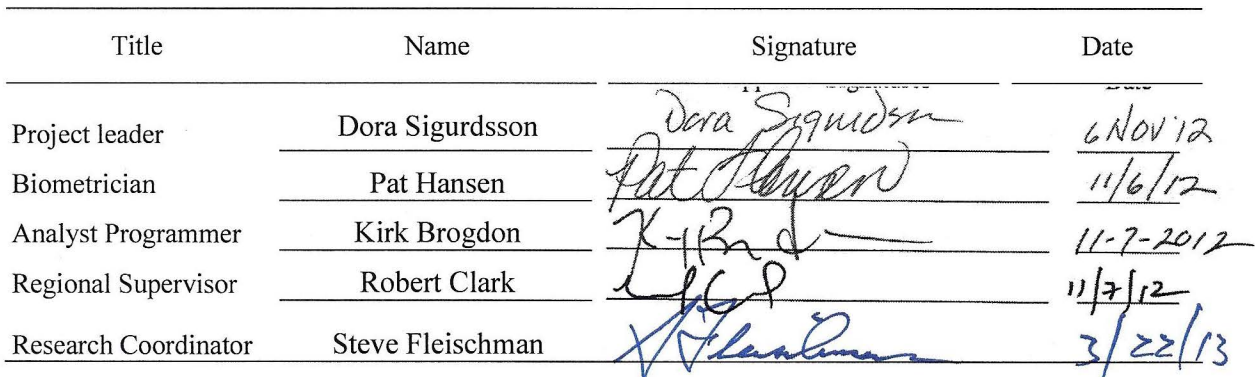 Title Name Signature Date
Project leader Dora Sigurdsson Dora Sigurdsson 6 Nov '12
Biometrician Pat Hansen Pat Hansen 11/6/12
Analyst Programmer Kirk Brogdon 11-7-2012
Regional Supervisor Robert Clark 11/7/12
Research Coordinator Steve Fleischman S Fleischman 3/22/13